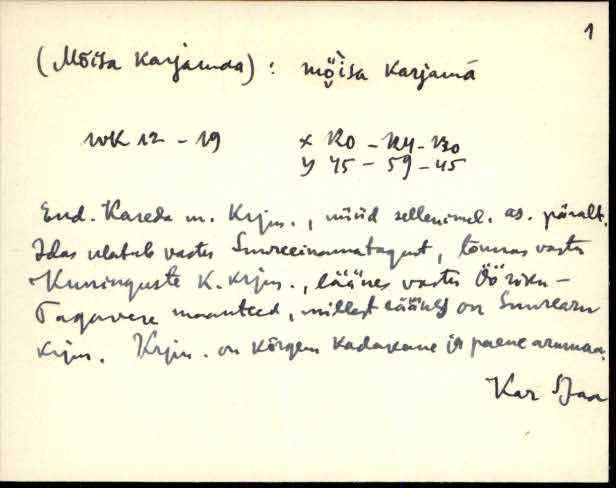 1
(Mõisa karjamaa) : mõisa karjamā
WK 12 - 19 x 120 - 124 - 130
y 45 - 59 - 45
End. Kareda m. krjm., nüüd sellenimel. as. päralt.
Idas ulatub vastu Suureeinamatagust, lõunas vastu
Kuninguste k. krjm., läänes vastu Ööriku-
Tagavere maanteed, millest läänes on Suurearu
krjm. Krjm. on kõrgem kadakane ja paene arumaa.
Kar SJaa